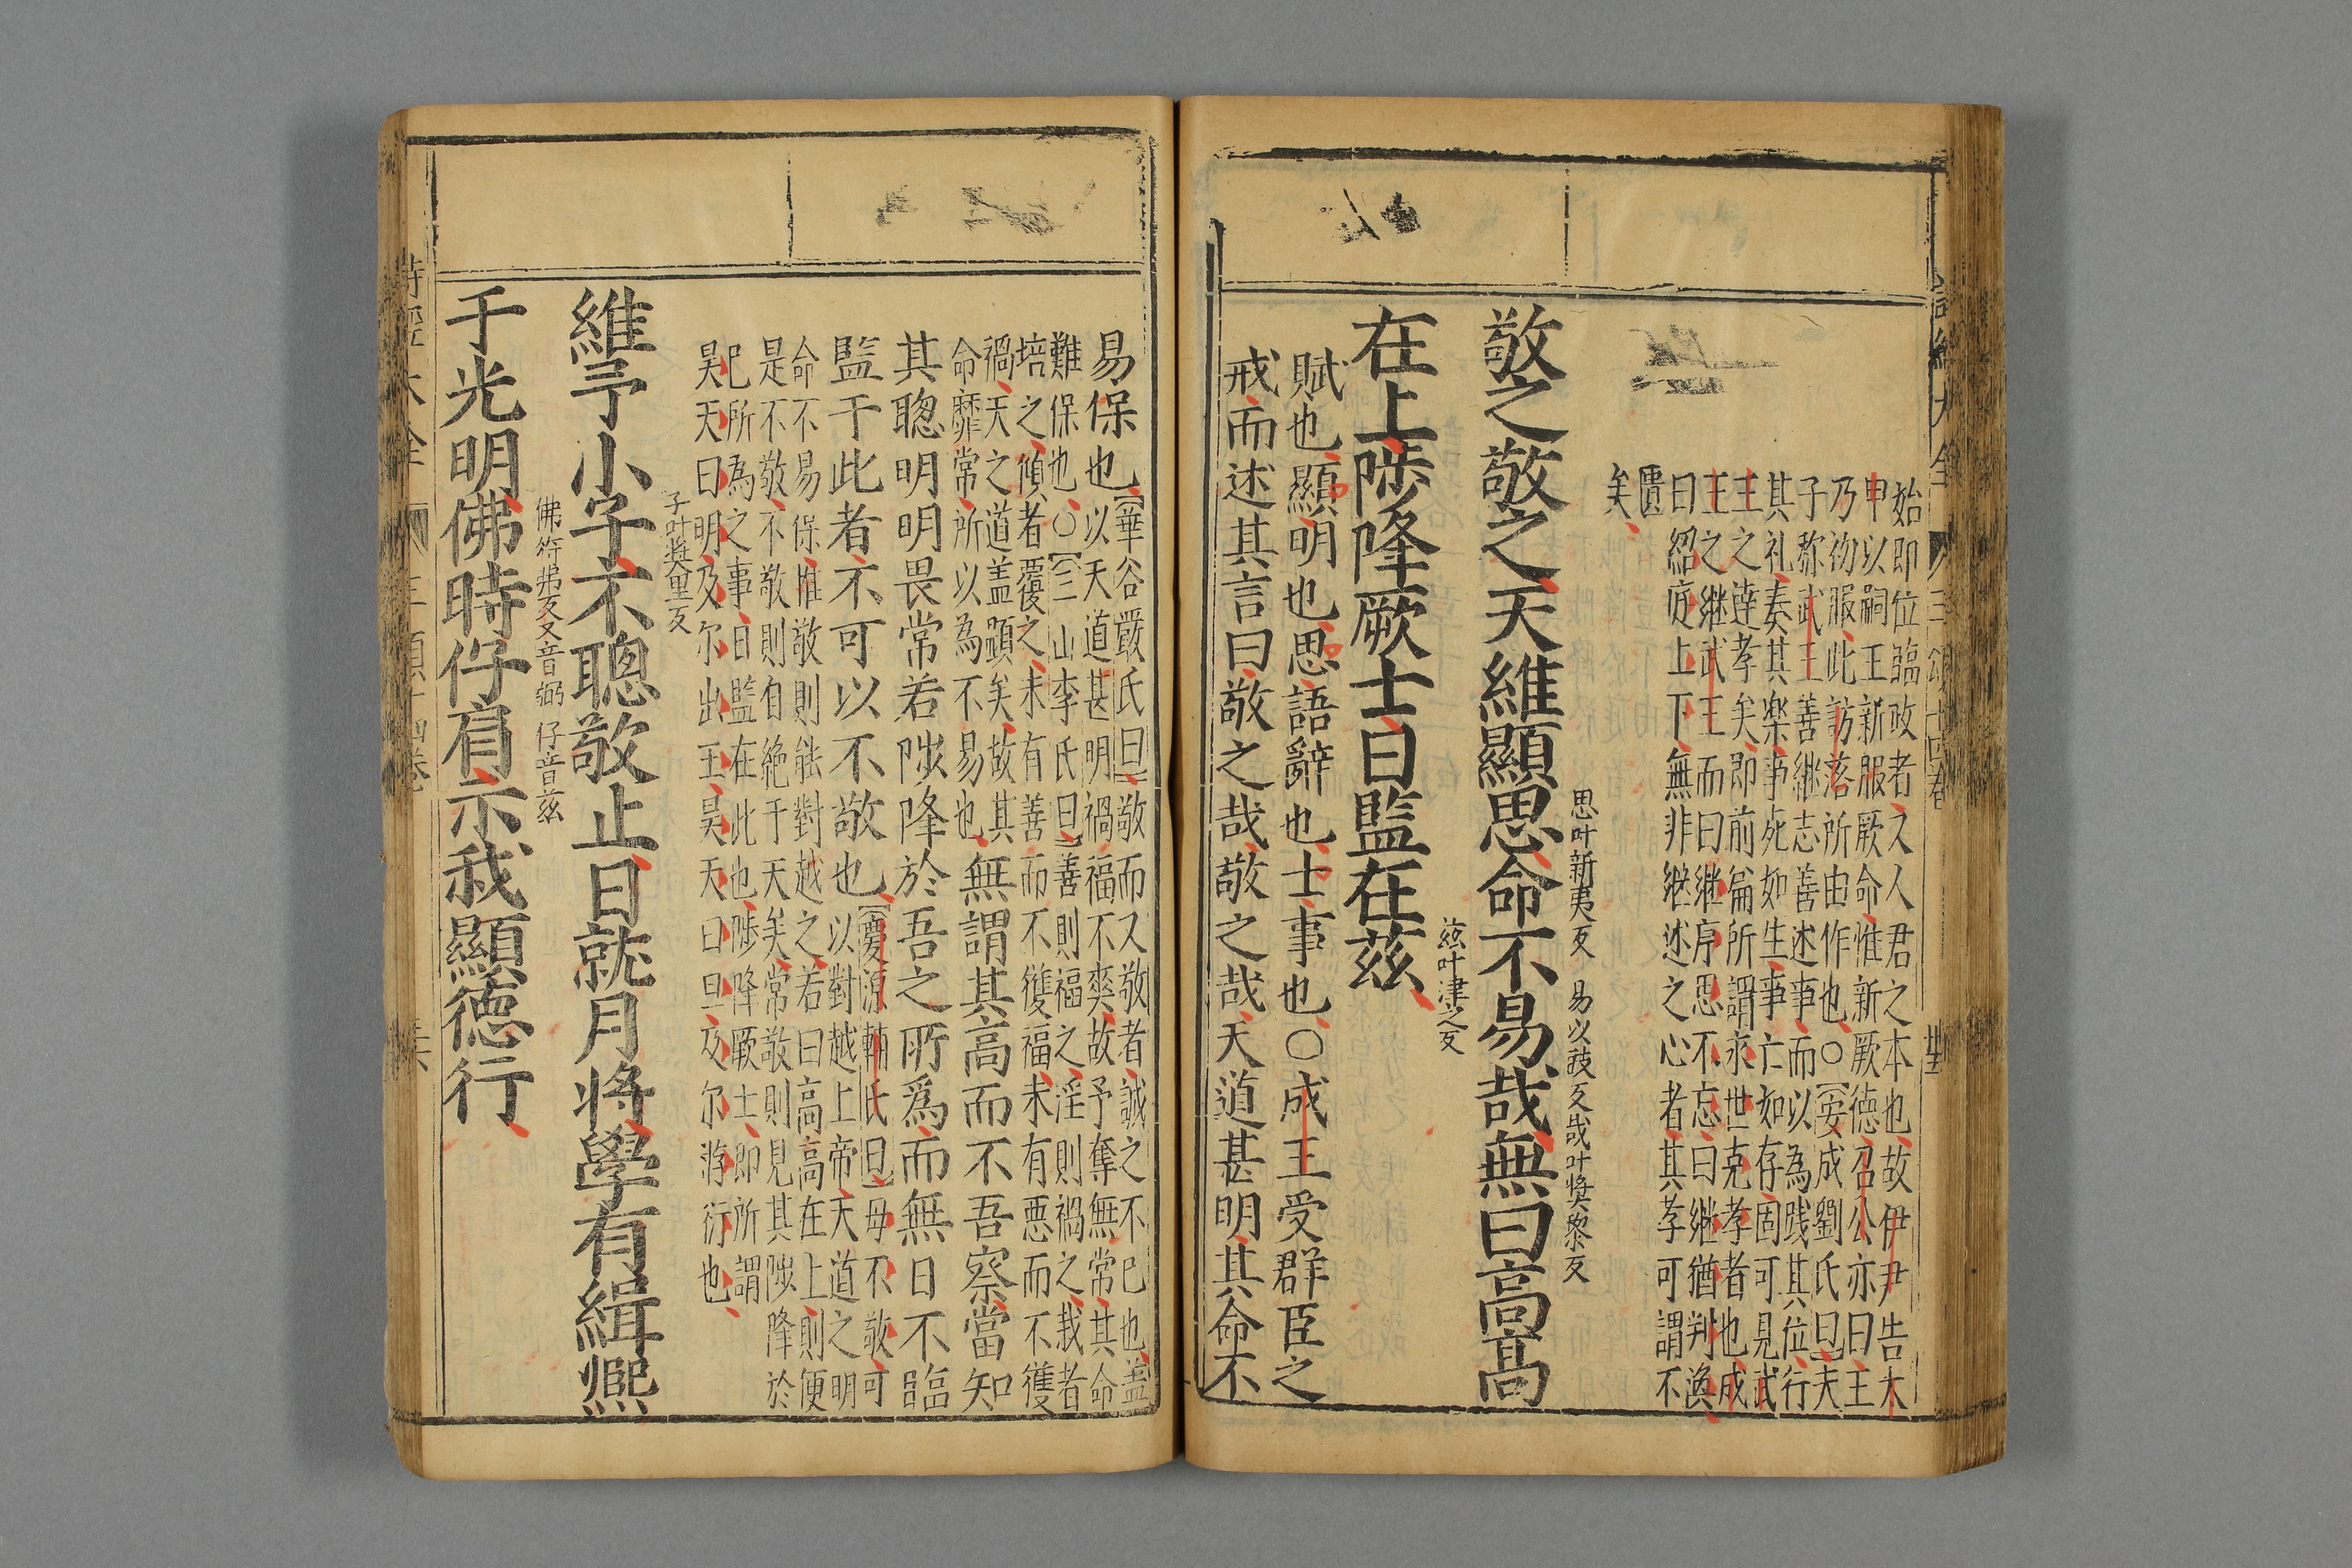 始即位臨政者又人君之本也故伊尹告太
申以嗣王新服厥命惟新厥德召公亦曰王
乃初服此訪落所由作也○安成劉氏曰夫
子称武王善継志善述事而以為践其位行
其礼奏其楽事死如生事亡如存固可見武
王之達孝矣即前篇所謂永世克孝者也成
王之継武王而曰継序思不忘曰継猶判渙
曰紹庭上下無非継述之心者其孝可謂不
匱
矣
思叶新夷反 易以豉反哉叶將黎反
敬之敬之天維顯思命不易哉無曰高高
茲叶津之反
在上陟降厥士日監在茲
賦也顯明也思語辭也士事也○成王受群臣之
戒而述其言曰敬之哉敬之哉天道甚明其命不
易保也華谷嚴氏曰敬而又敬者誠之不已也盖
以天道甚明禍福不爽故予奪無常其命
難保也○三山李氏曰善則福之淫則禍之栽者
培之傾者覆之未有善而不獲福未有悪而不獲
禍天之道盖顕矣故其
命靡常所以為不易也無謂其高而不吾察當知
其聰明明畏常若陟降於吾之所爲而無日不臨
監于此者不可以不敬也慶源輔氏曰毋不敬可
以對越上帝天道之明
命不易保惟敬則能對越之若曰高高在上則便
是不敬不敬則自絶于天矣常敬則見其陟降於
已所為之事日監在此也陟降厥士即所謂
昊天曰明及尔出王昊天曰旦及尔游衍也
子叶奬里反
維予小子不聰敬止日就月將學有緝熈
佛符弗反又音弼 仔音茲
于光明佛時仔肩示我顯德行
詩經大全 三頌十四卷